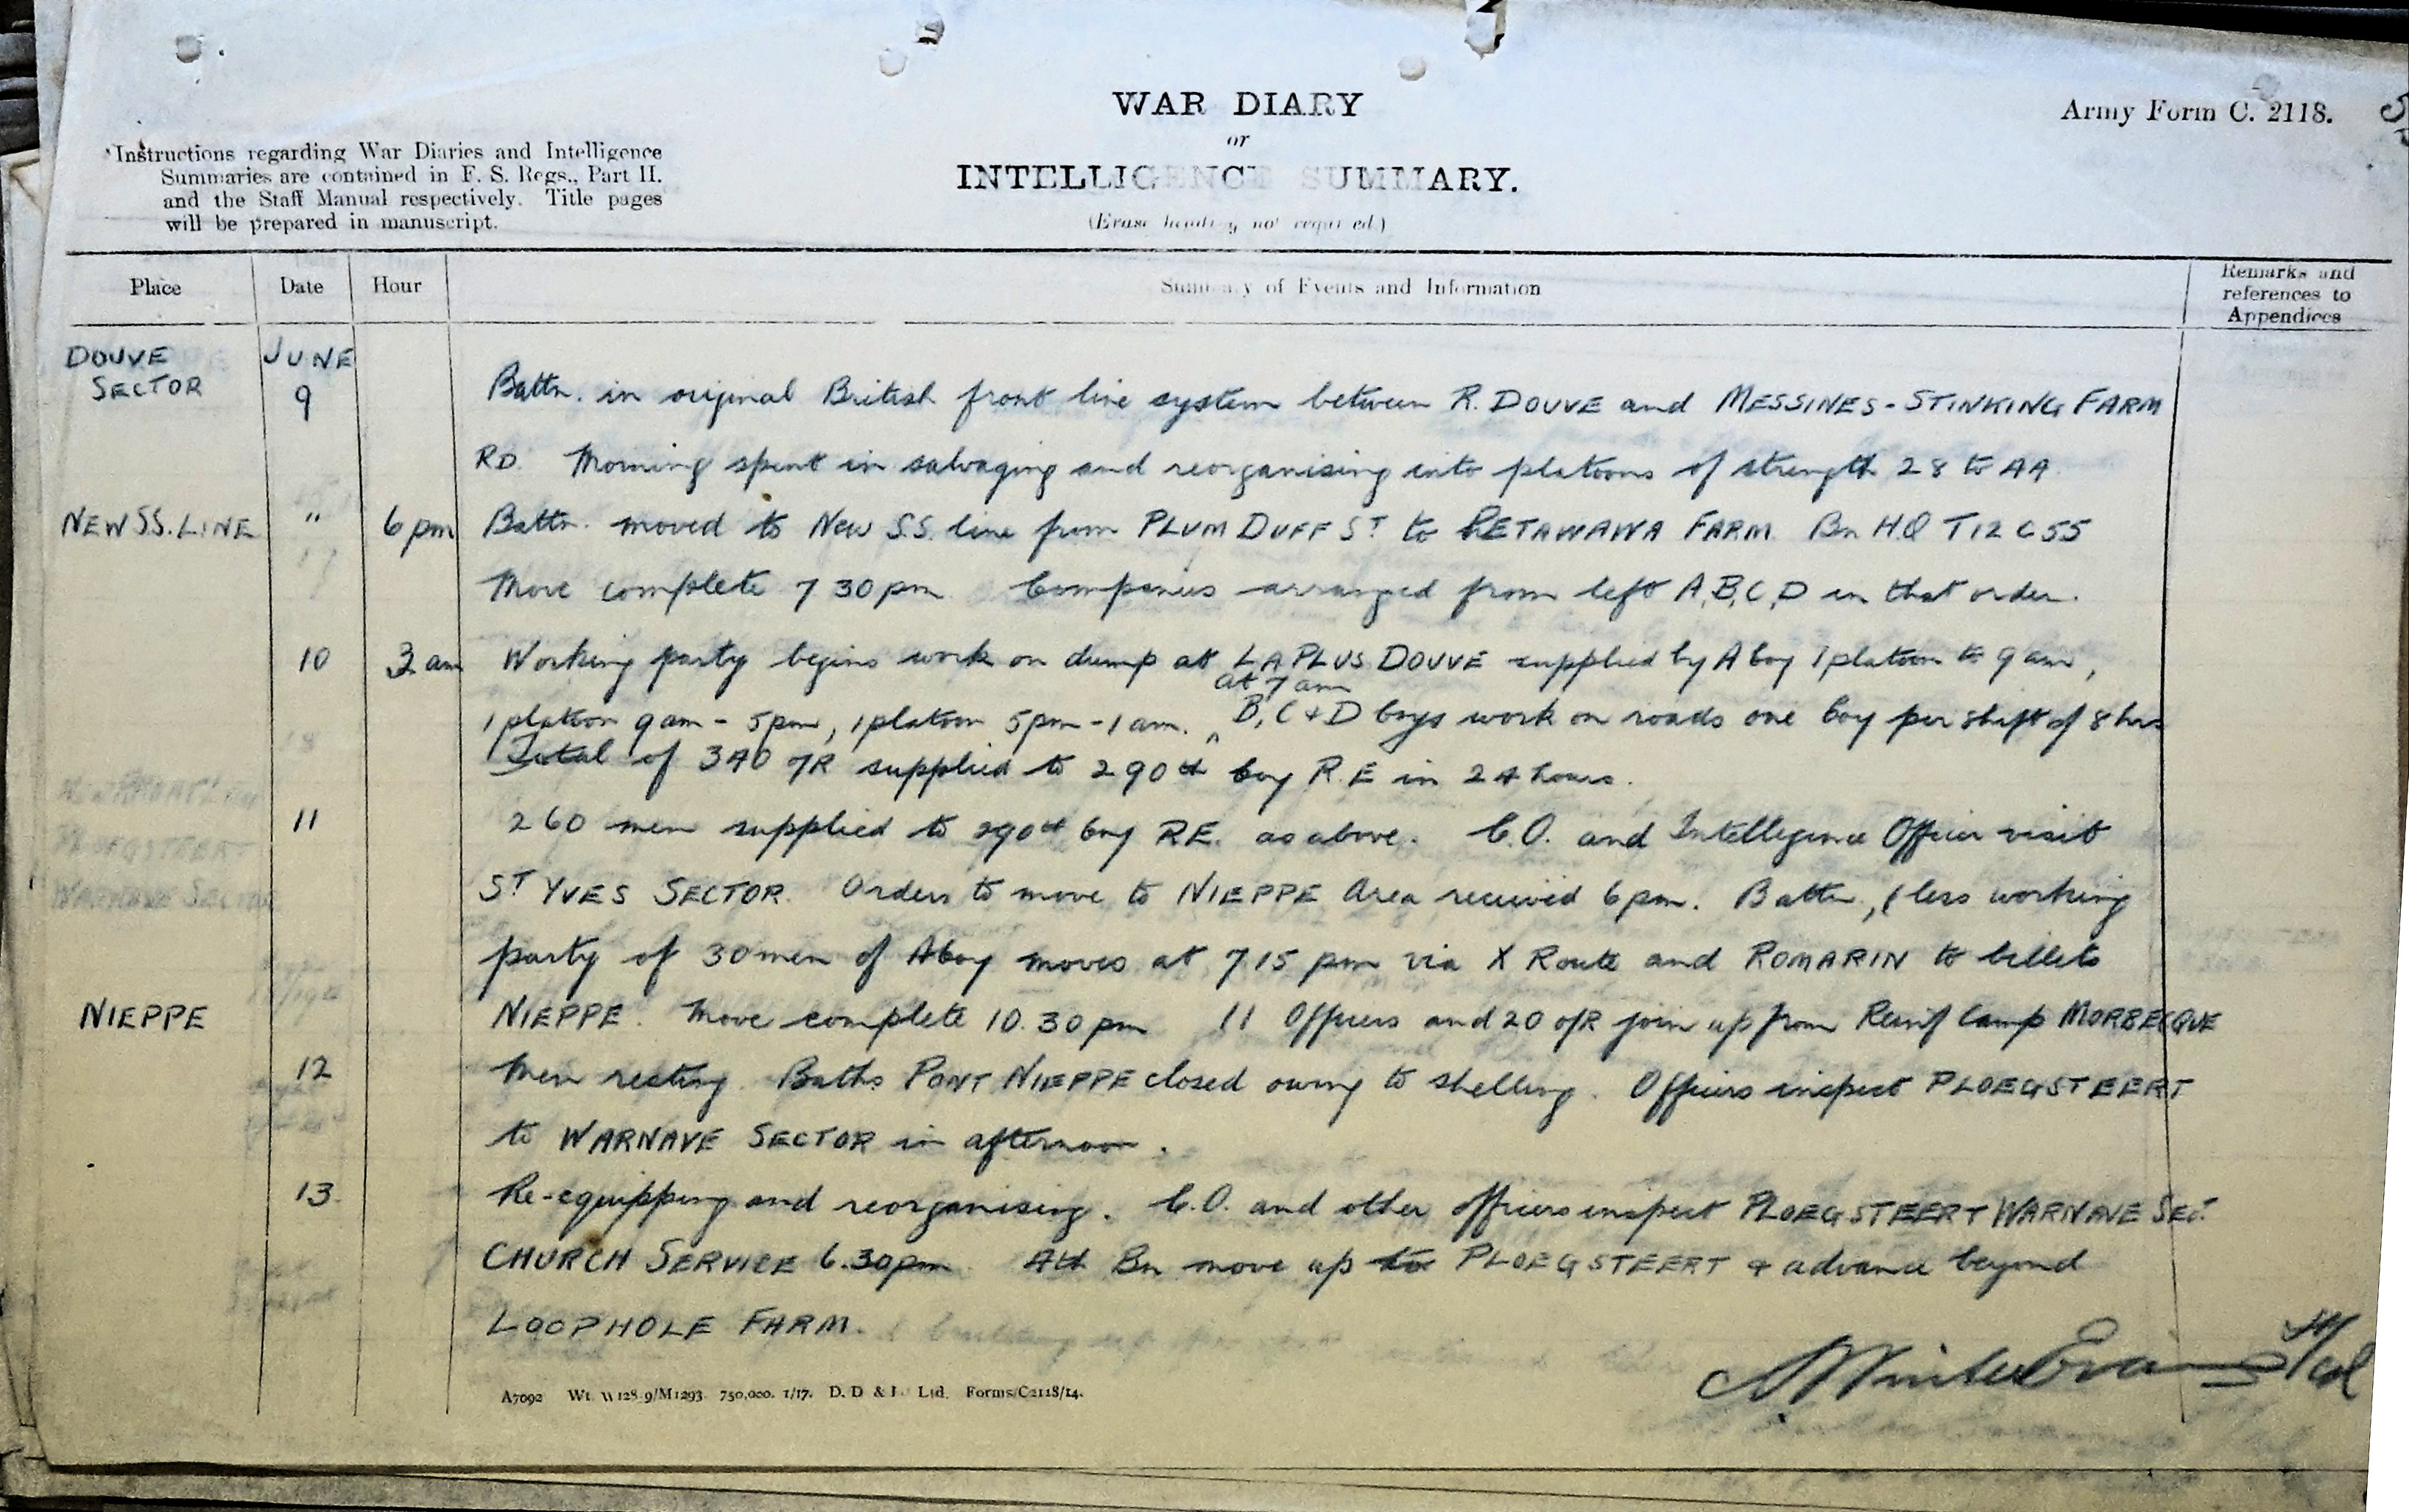 WAR DIARY
or
INTELLIGENCE SUMMARY.
(Erase heading not required.)
Army Form C. 2118.
Instructions regarding War Diaries and Intelligence
Summaries are contained in F. S. Regs., Part II.
and the Staff Manual respectively. Title pages
will be prepared in manuscript.
Place Date Hour Summary of Events and Information Remarks and references to Appendices
DOUVE SECTOR JUNE 9 Battn. in original British front line system between R. DOUVE and MESSINES - STINKING FARM
RD. Morning spent in salvaging and reorganising into platoons of strength 28 to 44
NEW S.S. LINE " 6 pm Battn. moved to New S.S. line from PLUM DUFF ST to PETAWAWA FARM. Bn H.Q T12 C 55
Move complete 7 30 pm Companies arranged from left A, B, C, D in that order.
10 3 am Working party begins work on dump at LA PLUS DOUVE supplied by A Coy 1 platoon to 9 am,
at 7 am
1 platoon 9 am - 5 pm, 1 platoon 5 pm - 1 am. B, C & D Coys work on roads one Coy per shift of 8 hrs
Total of 340 O/R supplied to 290th Coy R.E in 24 hours.
11 260 men supplied to 290th Coy RE. as above. C.O. and Intellegence Officer visit
ST YVES SECTOR. Orders to move to NIEPPE Area received 6 pm. Battn, (less working
party of 30 men of A Coy moves at 7 15 pm via X Route and ROMARIN to billets
NIEPPE NIEPPE. Move complete 10.30 pm 11 Officers and 20 O/R join up from Reinf Camp MORBECQUE
12 Men resting. Baths PONT NIEPPE closed owing to shelling. Officers inspect PLOEGSTEERT
to WARNAVE SECTOR in afternoon.
13. Re-equipping and reorganising. C.O. and other officers inspect PLOEGSTEERT WARNAVE Sec.
CHURCH SERVICE 6.30 pm. 4th Bn move up to PLOEGSTEERT & advance beyond
LOOPHOLE FARM.
Winter Evans
A7092 Wt. W128 9/M1293 750,000. 1/17. D. D & L. Ltd. Forms/C2118/14.